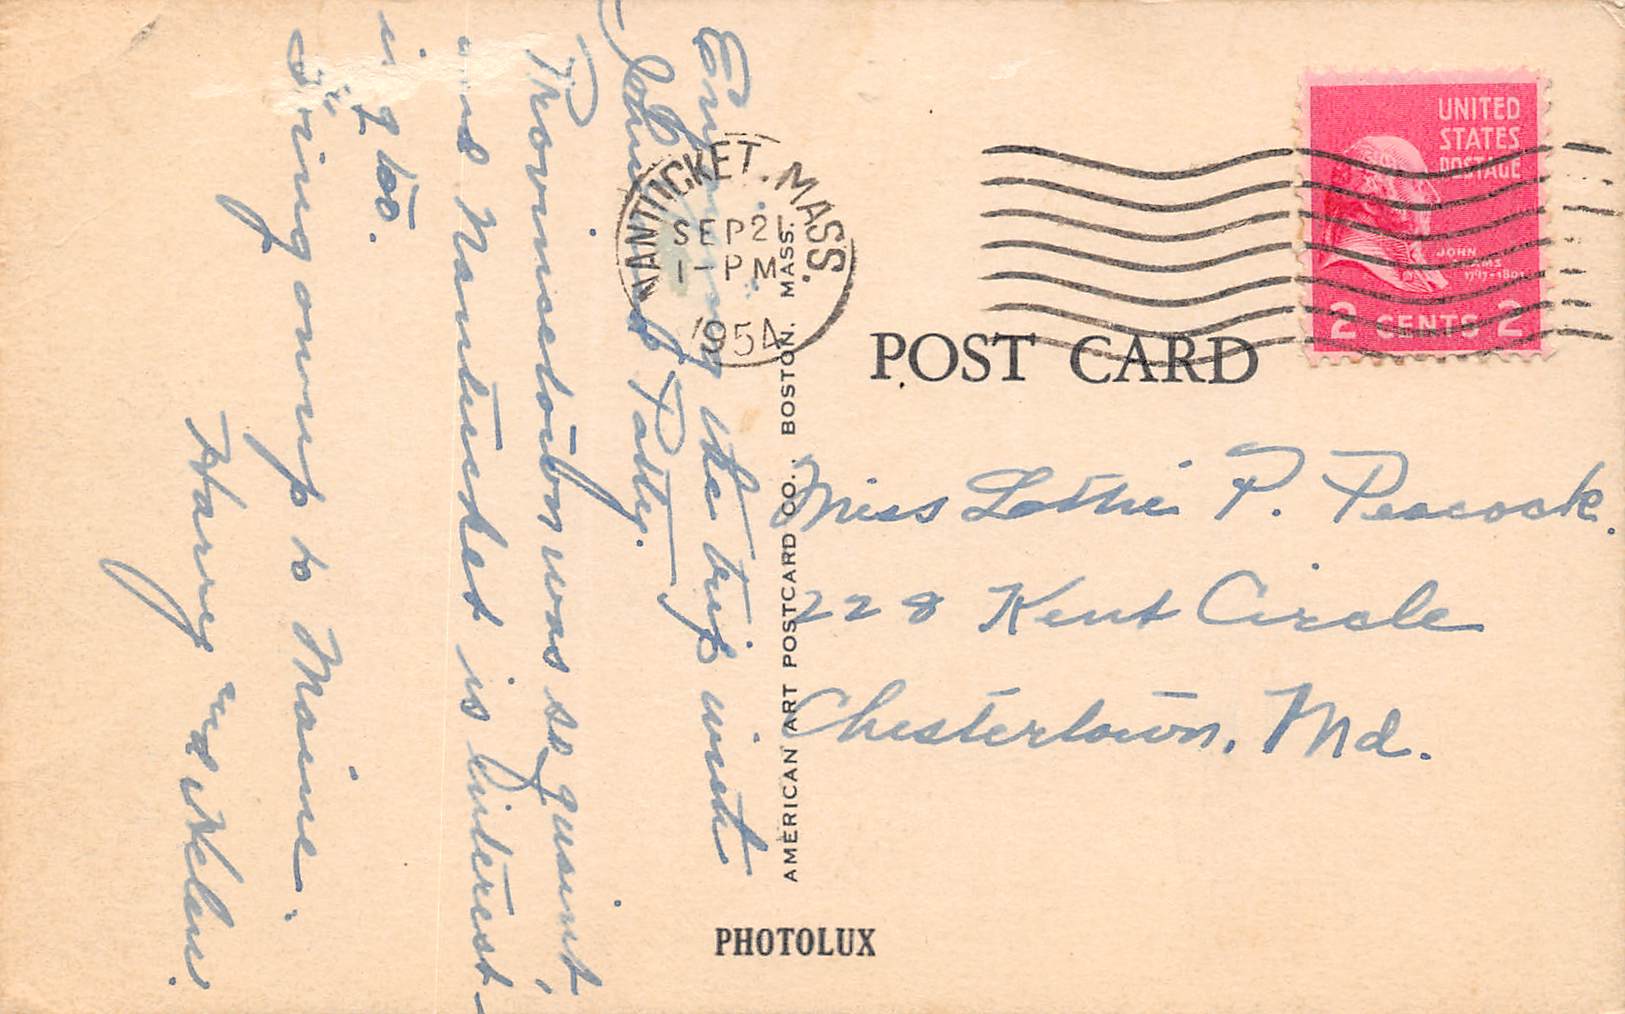 Enjoying the trip with
John & Patty.
Provincetown was so quaint,
and Nantucket is interest-
ing too.
Going on up to Maine.
Harry and Helen.
NANTUCKET, MASS.
SEP 21
1-PM
1954
UNITED
STATES
POSTAGE
JOHN
ADAMS
1797-1801
2 CENTS 2
POST CARD
Miss Lottie P. Peacock.
228 Kent Circle
Chestertown, Md.
AMERICAN ART POSTCARD CO., BOSTON, MASS.
PHOTOLUX